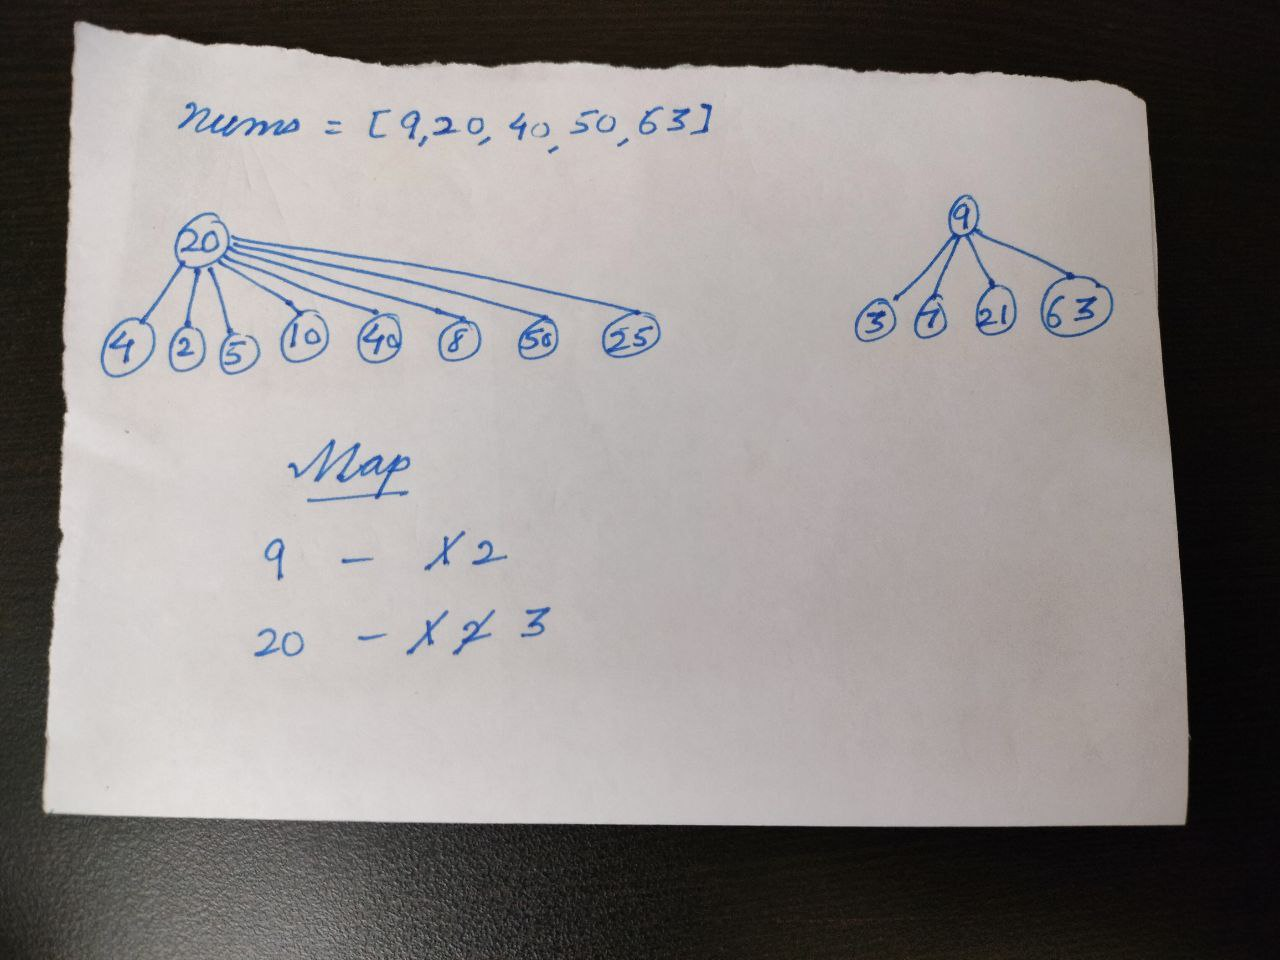 nums = [9,20,40,50,63]
20
9
4 2 5 10 40 8 50 25
3 7 21 63
Map
9 - 1 2
20 - 1 2 3